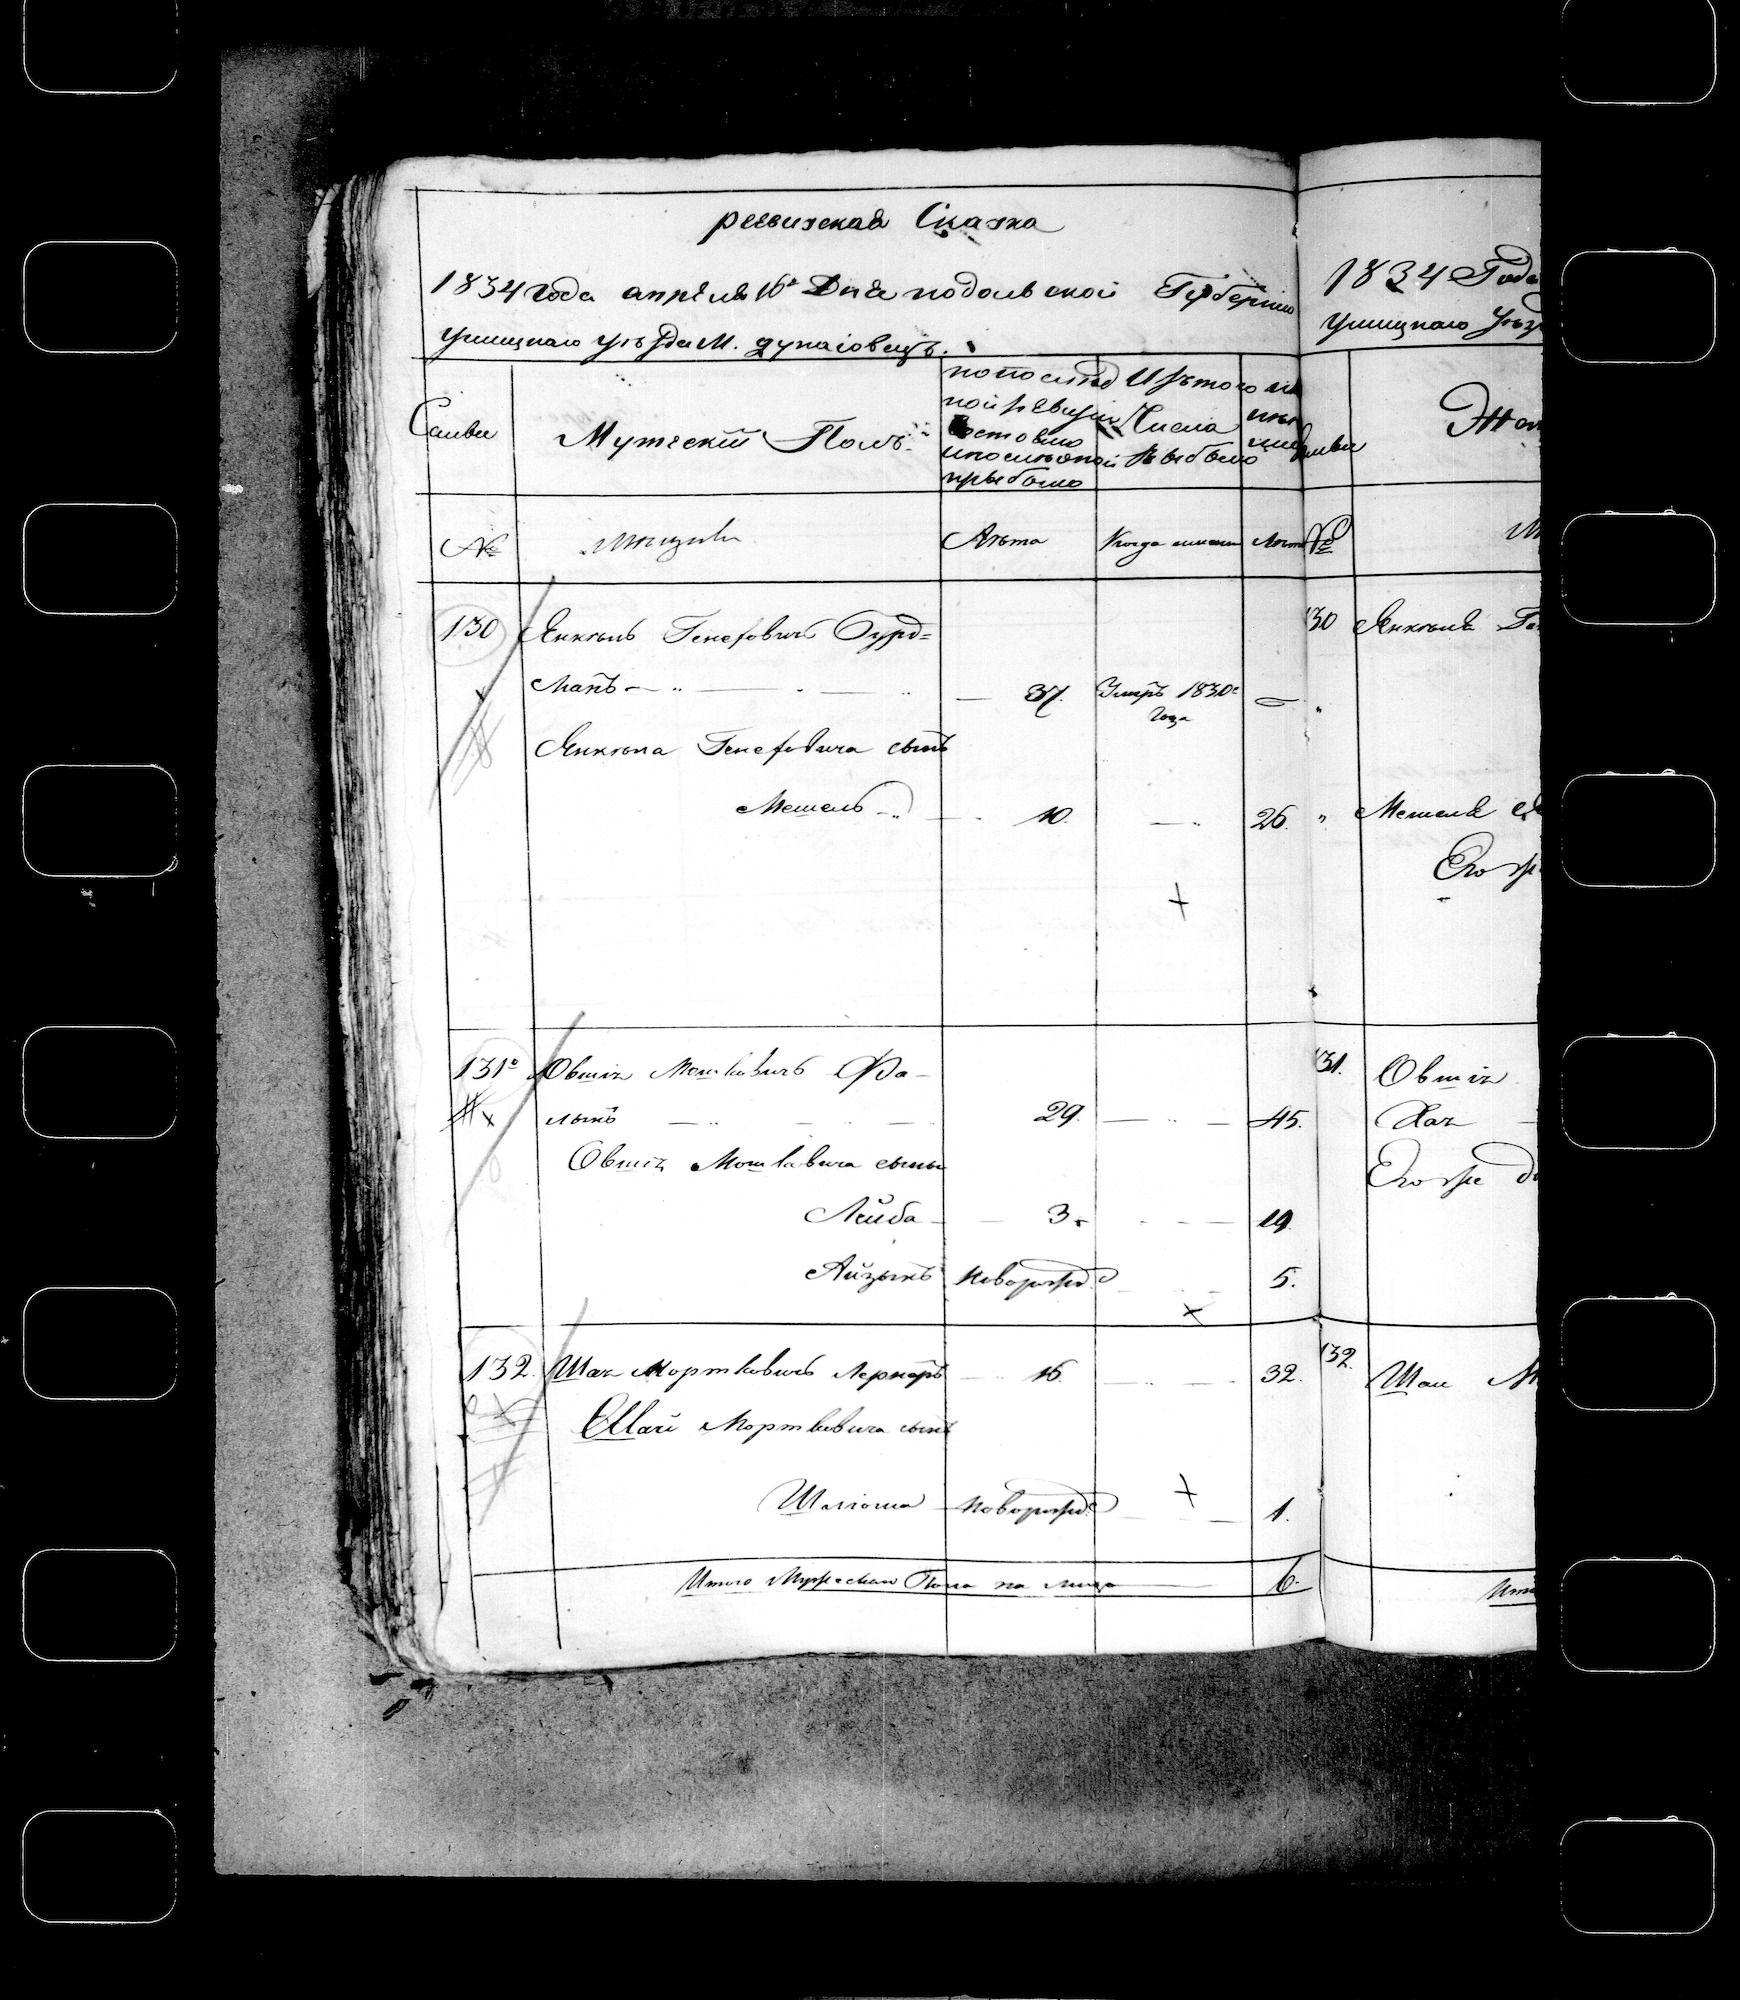 ревизская Сказка
1834 года апреля 16го Дня подольской Губернии
ушицкаго уезда М. дунаіовецъ.
Семьи
Мужескій Полъ
по последней ревизіи состояло и после оной прыбыло
Изъ того Числа Выбыло
№
мещане
Лета
Когда именно
Лета
130 Янкель Генехович Бурд=
манъ 37. Умръ 1830го года
Янкеля Генеховича сынъ
Мешель 10. 26.
131 Овшія Мошковичъ Фа-
лыкъ 29. 45.
Овшія Мошковича сыны
Лейба 3. 19
Айзыкъ Новорожд. 5.
132. Шая Мортковичъ Лернеръ 16. 32.
Шаи Мортковича сынъ
Шліома Новорожд. 1.
Итого Мужеска Пола на лицо 6.
1834 Года
ушицкаго уез
№
130 Янкеля Ге
Мешеля
Его же
131. Овшія
Хая
Его же до
132. Шаи М
Ито